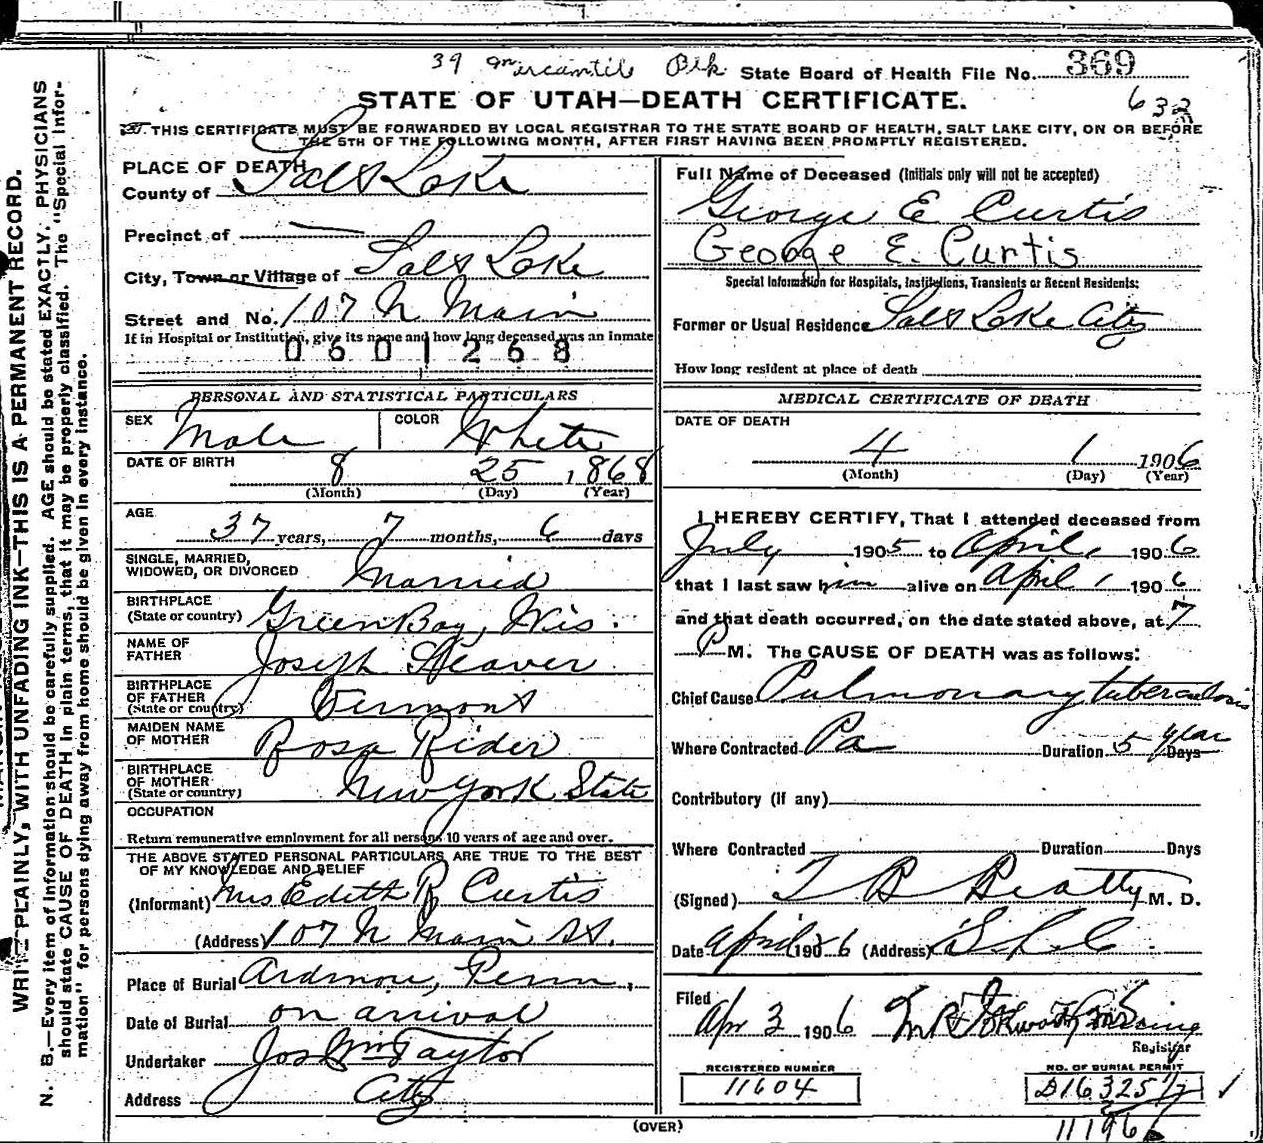 39 Mercantile Blk State Board of Health File No. 369
STATE OF UTAH—DEATH CERTIFICATE.
632
THIS CERTIFICATE MUST BE FORWARDED BY LOCAL REGISTRAR TO THE STATE BOARD OF HEALTH, SALT LAKE CITY, ON OR BEFORE
THE 5TH OF THE FOLLOWING MONTH, AFTER FIRST HAVING BEEN PROMPTLY REGISTERED.
WRITE PLAINLY, WITH UNFADING INK—THIS IS A PERMANENT RECORD.
N. B.—Every item of information should be carefully supplied. AGE should be stated EXACTLY. PHYSICIANS
should state CAUSE OF DEATH in plain terms, that it may be properly classified. The "Special Infor-
mation" for persons dying away from home should be given in every instance.
PLACE OF DEATH
County of Salt Lake
Precinct of
City, Town or Village of Salt Lake
Street and No. 107 N Main
If in Hospital or Institution, give its name and how long deceased was an inmate
0601268
PERSONAL AND STATISTICAL PARTICULARS
SEX Male COLOR White
DATE OF BIRTH 8 25 1868
(Month) (Day) (Year)
AGE
37 years, 7 months, 6 days
SINGLE, MARRIED,
WIDOWED, OR DIVORCED Married
BIRTHPLACE
(State or country) Green Bay, Wis.
NAME OF
FATHER Joseph
BIRTHPLACE
OF FATHER
(State or country) Vermont
MAIDEN NAME
OF MOTHER Rosa Rider
BIRTHPLACE
OF MOTHER
(State or country) New York State
OCCUPATION
Return remunerative employment for all persons 10 years of age and over.
THE ABOVE STATED PERSONAL PARTICULARS ARE TRUE TO THE BEST
OF MY KNOWLEDGE AND BELIEF
(Informant) Mrs Edith R Curtis
(Address) 107 N Main St.
Place of Burial Ardmore, Penn.
Date of Burial on arrival
Undertaker Jos Wm Taylor
Address City
Full Name of Deceased (Initials only will not be accepted)
George E Curtis
George E. Curtis
Special Information for Hospitals, Institutions, Transients or Recent Residents:
Former or Usual Residence Salt Lake City
How long resident at place of death
MEDICAL CERTIFICATE OF DEATH
DATE OF DEATH
4 1 1906
(Month) (Day) (Year)
I HEREBY CERTIFY, That I attended deceased from
July 1905 to April 1 1906
that I last saw him alive on April 1 1906
and that death occurred, on the date stated above, at 7
P M. The CAUSE OF DEATH was as follows:
Chief Cause Pulmonary tuberculosis
Where Contracted Pa Duration 5 year Days
Contributory (if any)
Where Contracted Duration Days
(Signed) T B Beatty M. D.
Date April 2 1906 (Address) S. L. C
Filed
Apr 3 1906
Registrar
REGISTERED NUMBER
11604
NO. OF BURIAL PERMIT
D16325
11196
(OVER)